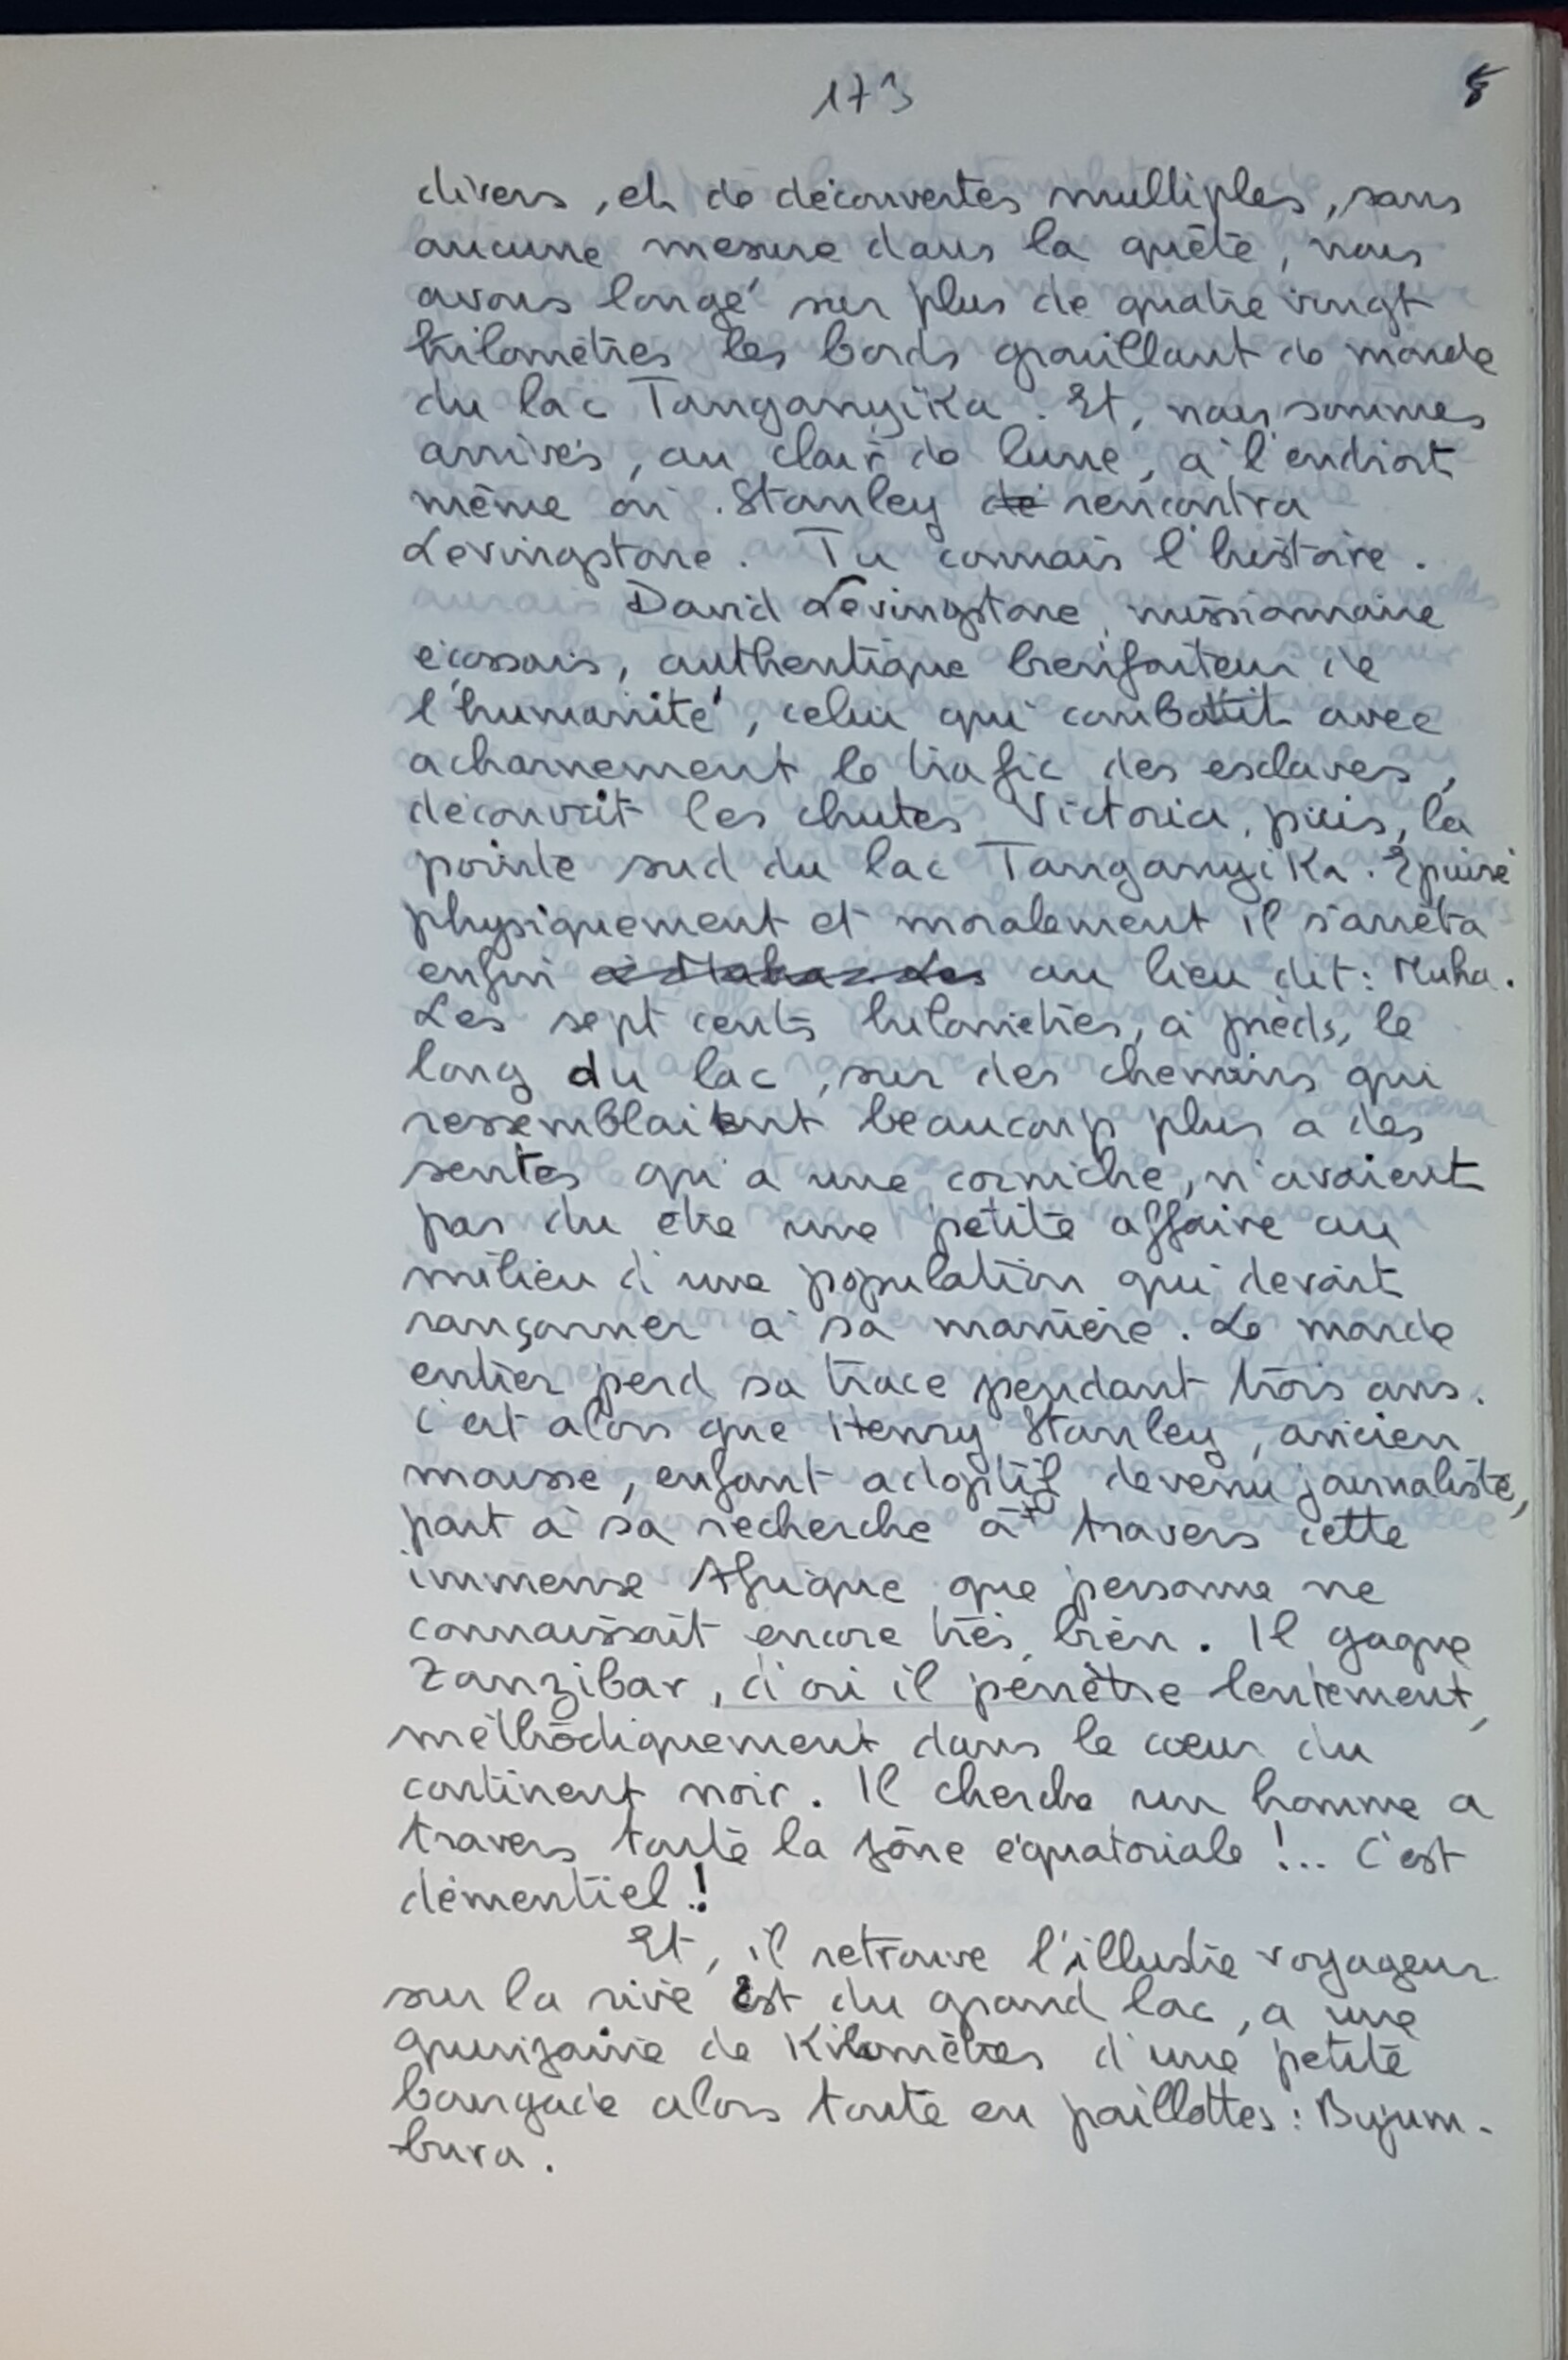 173
divers, et de découvertes multiples, sans
aucune mesure dans la quête, nous
avons longé sur plus de quatre vingt
kilomètres les bords grouillant de monde
du lac Tanganyika. Et, nous sommes
arrivés, au clair de lune, à l'endroit
même où Stanley de rencontra
Levingstone. Tu connais l'histoire.
David Levingstone, missionnaire
écossais, authentique bienfaiteur de
l'humanité, celui qui combattit avec
acharnement le trafic des esclaves,
découvrit les chutes Victoria, puis, la
pointe sud du lac Tanganyika. Epuisé
physiquement et moralement il s'arrêta
enfin au lieu dit : Muha.
Les sept cents kilomètres, à pieds, le
long du lac, sur des chemins qui
ressemblaient beaucoup plus a des
sentes qu'a une corniche, n'avaient
pas du être une petite affaire au
milieu d'une population qui devait
rançonner à sa manière. Le monde
entier perd sa trace pendant trois ans.
C'est alors que Henry Stanley, ancien
mousse, enfant adoptif devenu journaliste,
part à sa recherche à travers cette
immense Afrique que personne ne
connaissait encore très bien. Il gagne
Zanzibar, d'où il pénètre lentement,
méthodiquement dans le coeur du
continent noir. Il cherche un homme a
travers toute la zône équatoriale !... C'est
démentiel !
Et, il retrouve l'illustre voyageur
sur la rive Est du grand lac, a une
quinzaine de Kilomètres d'une petite
bourgade alors toute en paillottes : Bujum-
bura.